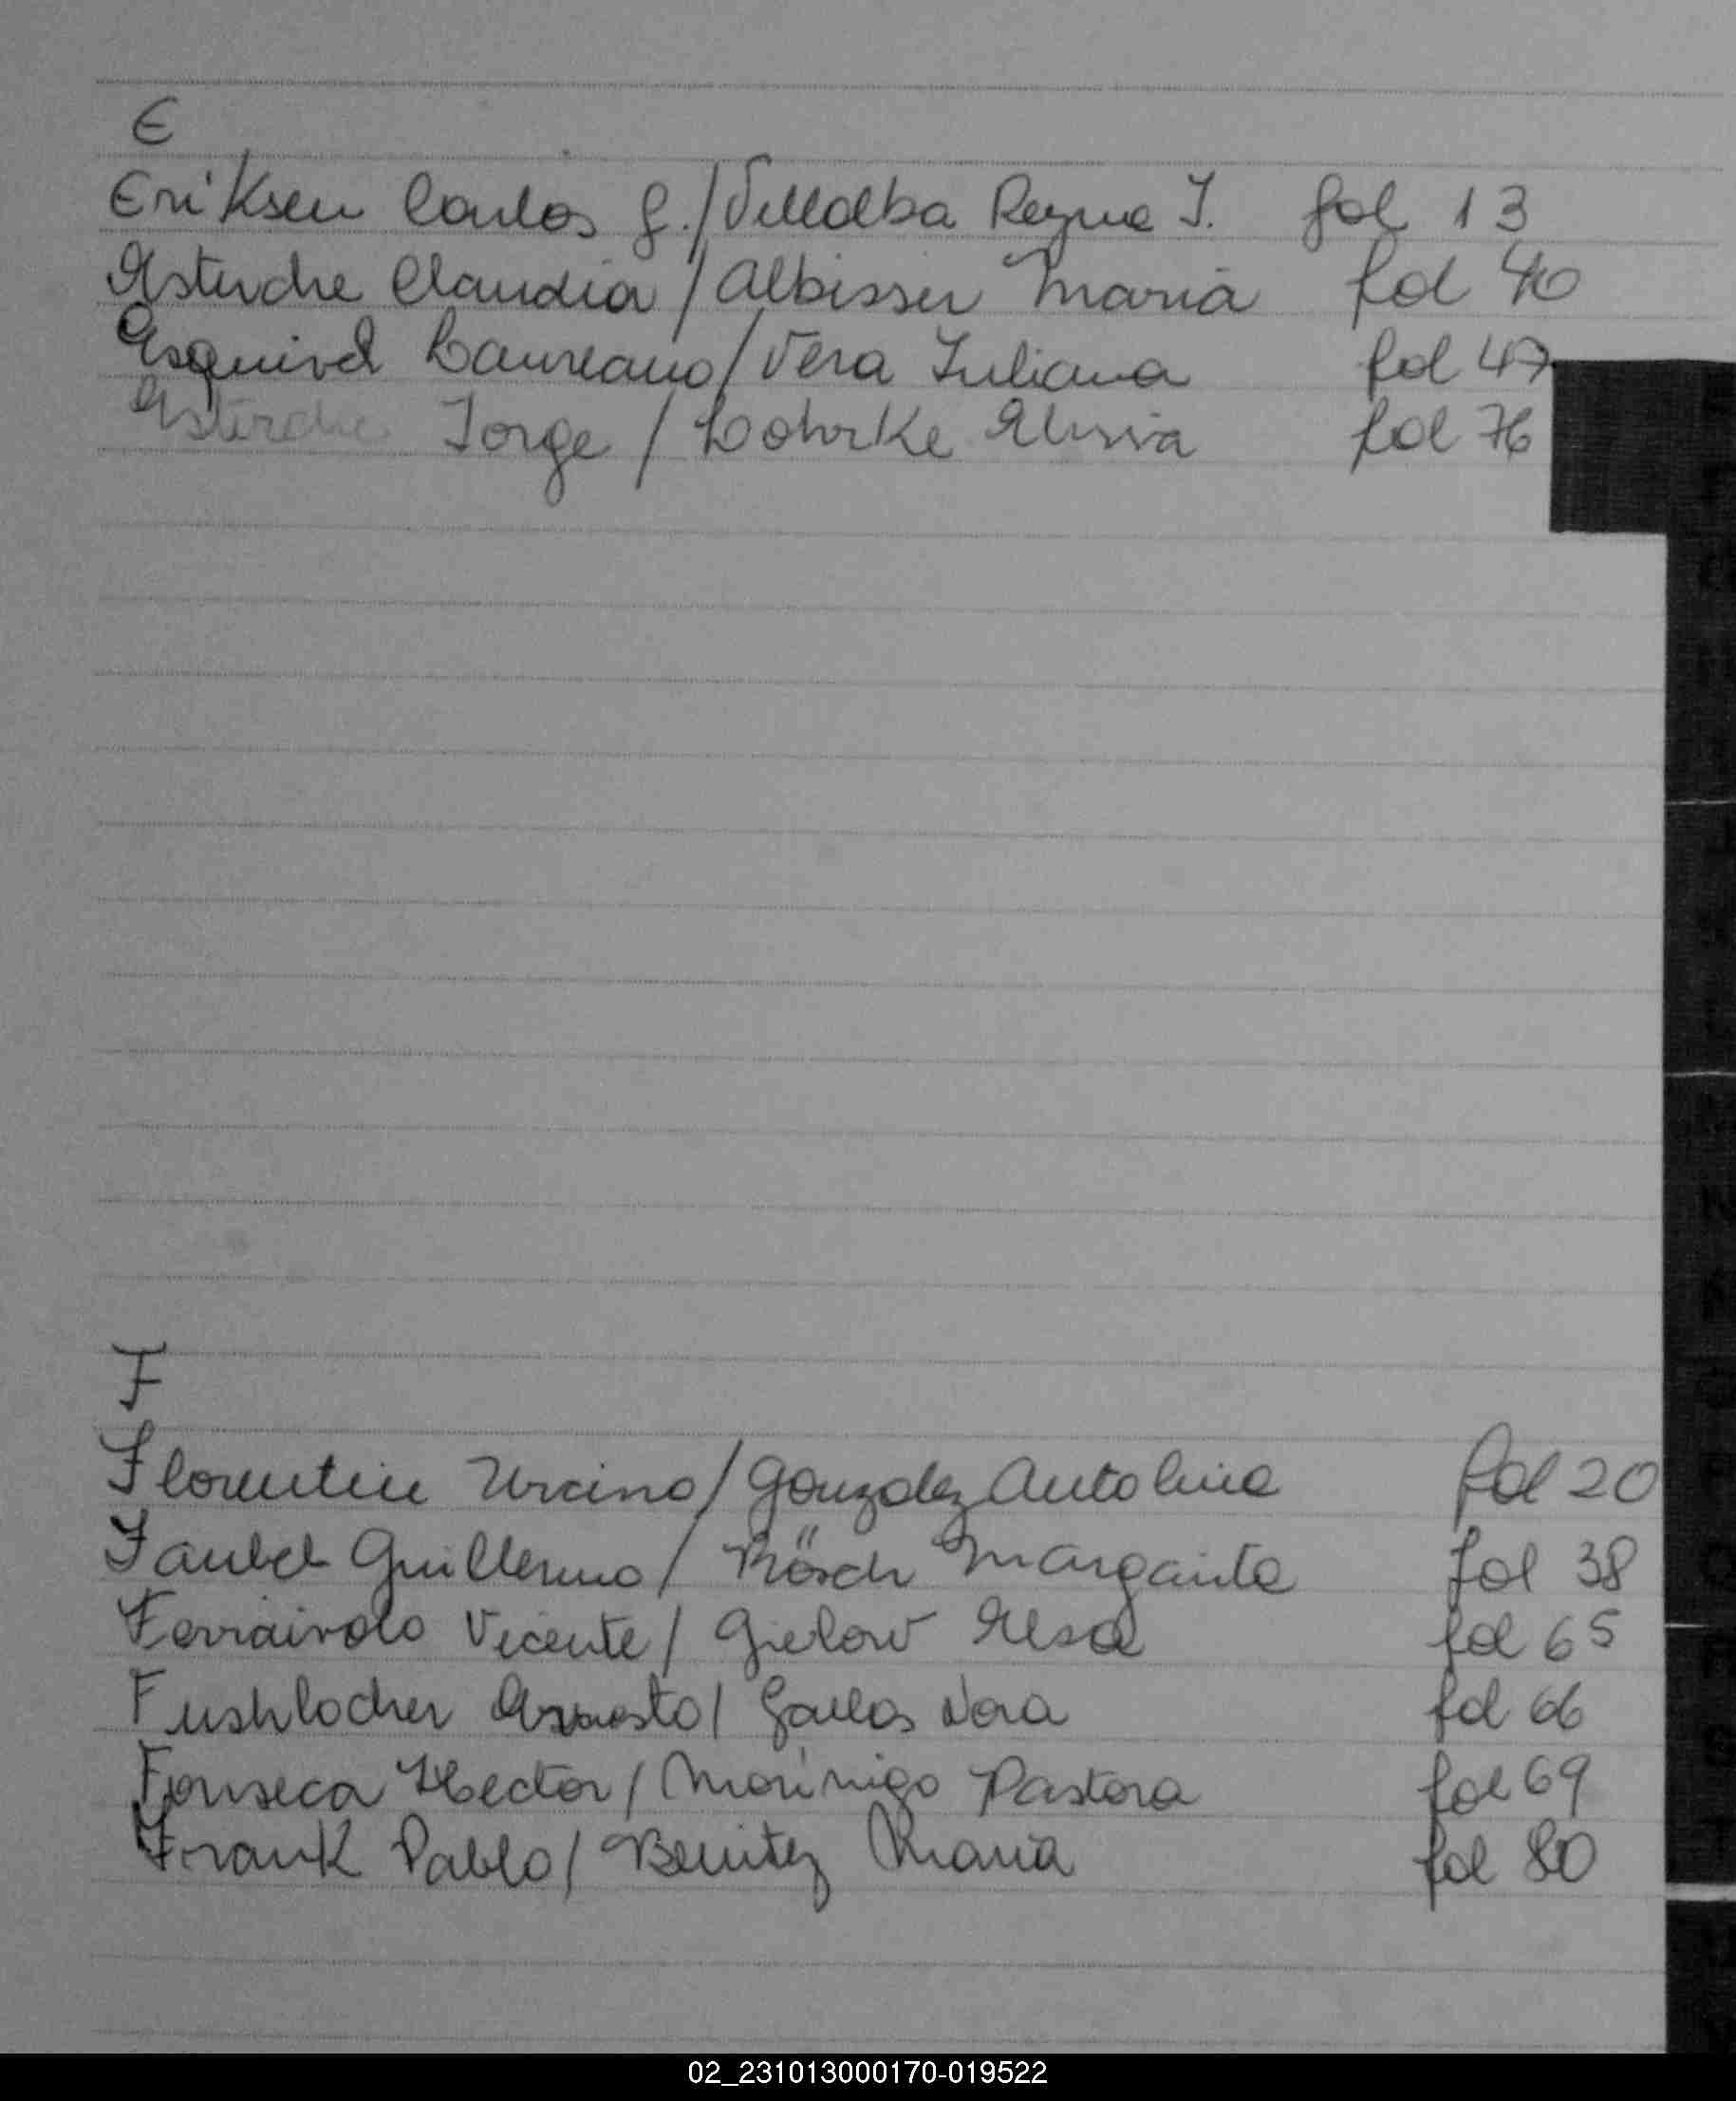 E
Eriksen Carlos G./Villalba Reyna I. fol 13
Esterche Claudia / Albisser Maria fol 40
Esquivel Laureano/Vera Juliana fol 47
Esterche Jorge / Lohrke fol 76
F
Florentin Urcino/Gonzalez Antolina fol 20
Faubel Guillermo/ Rösch Margarita fol 38
Ferraivolo Vicente/ Gielow Elsa fol 65
Fushlocher / Nora fol 66
Fonseca Hector/ Morínigo Pastora fol 69
Frank Pablo/ Benitez Maria fol 80
02_231013000170-019522